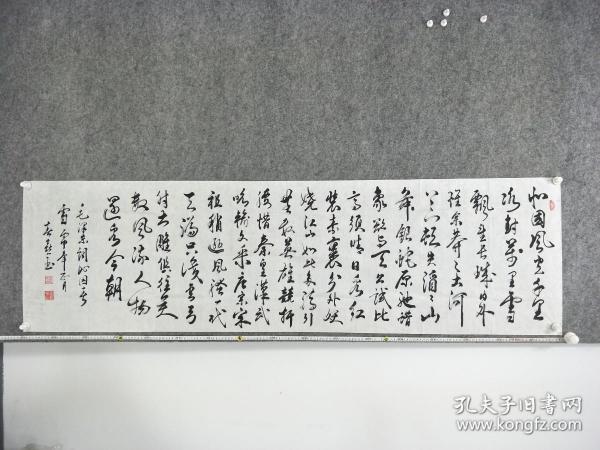 北国风光千里
冰封萬里雪
飘望长城内外
惟余莽莽大河
上下顿失滔滔山
舞银蛇原驰蜡
象欲与天公试比
高须晴日看红
装素裹分外妖
娆江山如此多娇引
無数英雄竞折
腰惜秦皇汉武
略输文采唐宗宋
祖稍逊风骚一代
天骄只识弯弓
射大雕俱往矣
数风流人物
还看今朝
毛泽东词沁园春
雪
孔夫子旧书网